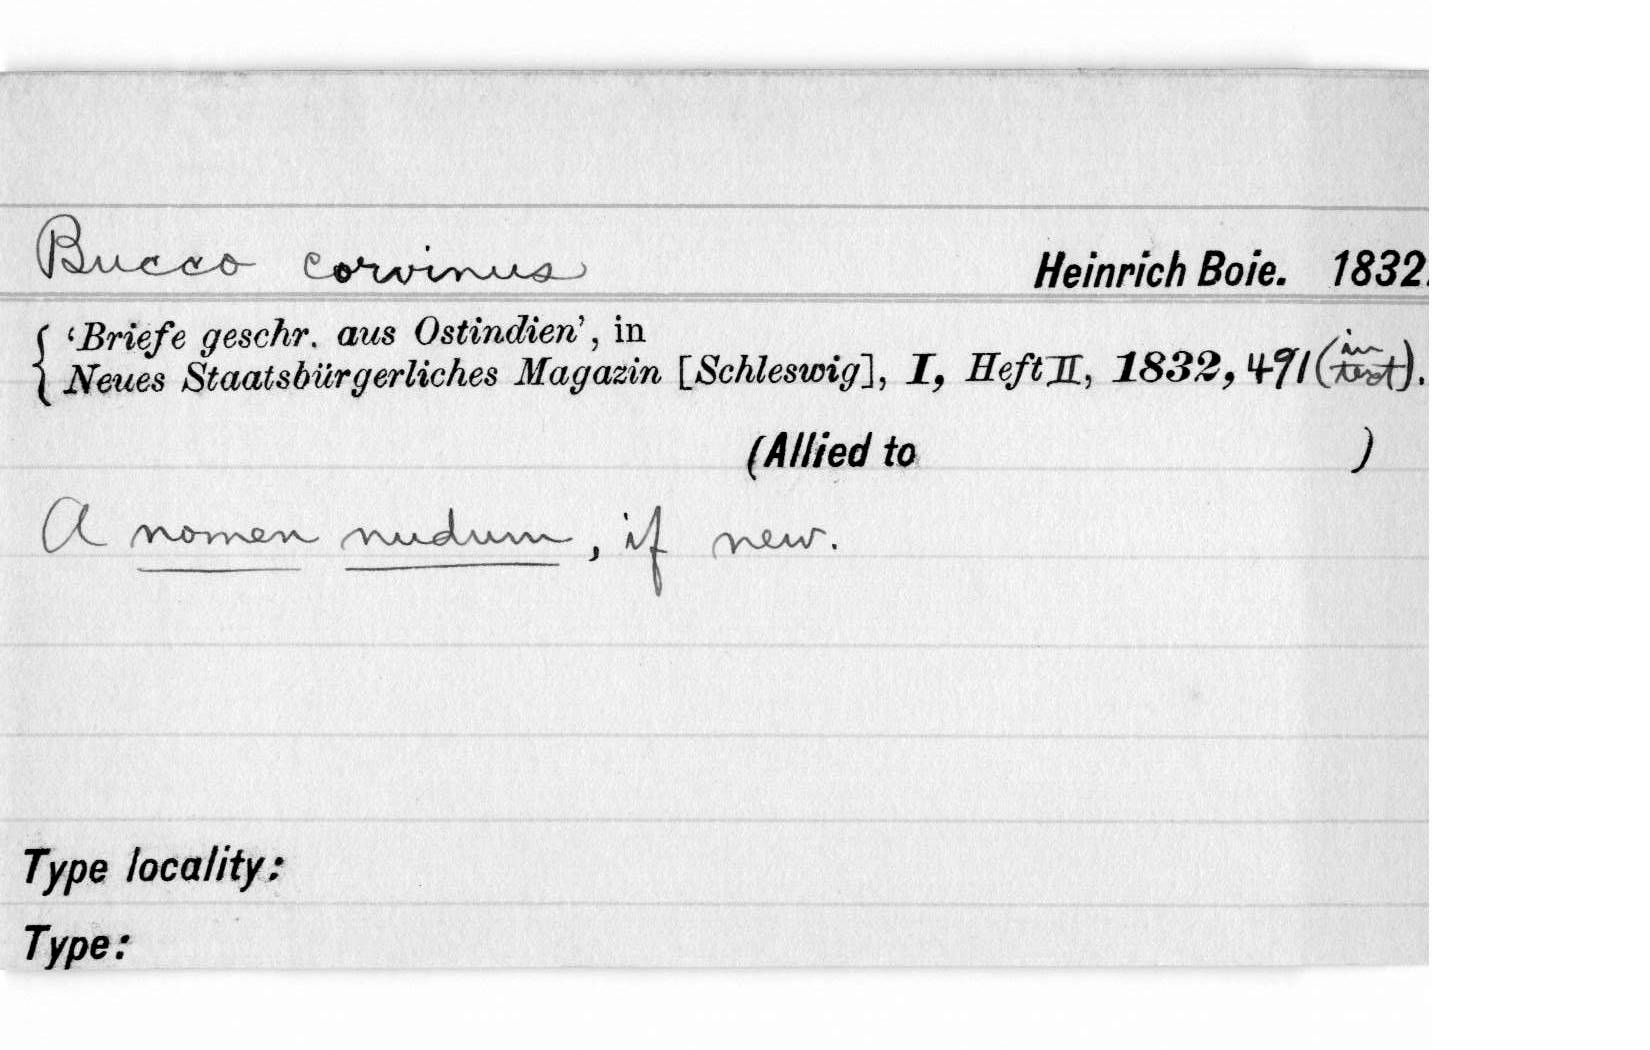 Bucco corvinus Heinrich Boie. 1832.
'Briefe geschr. aus Ostindien', in
Neues Staatsbürgerliches Magazin [Schleswig], I, Heft II, 1832, 491 (in text).
(Allied to )
A nomen nudum, if new.
Type locality:
Type: